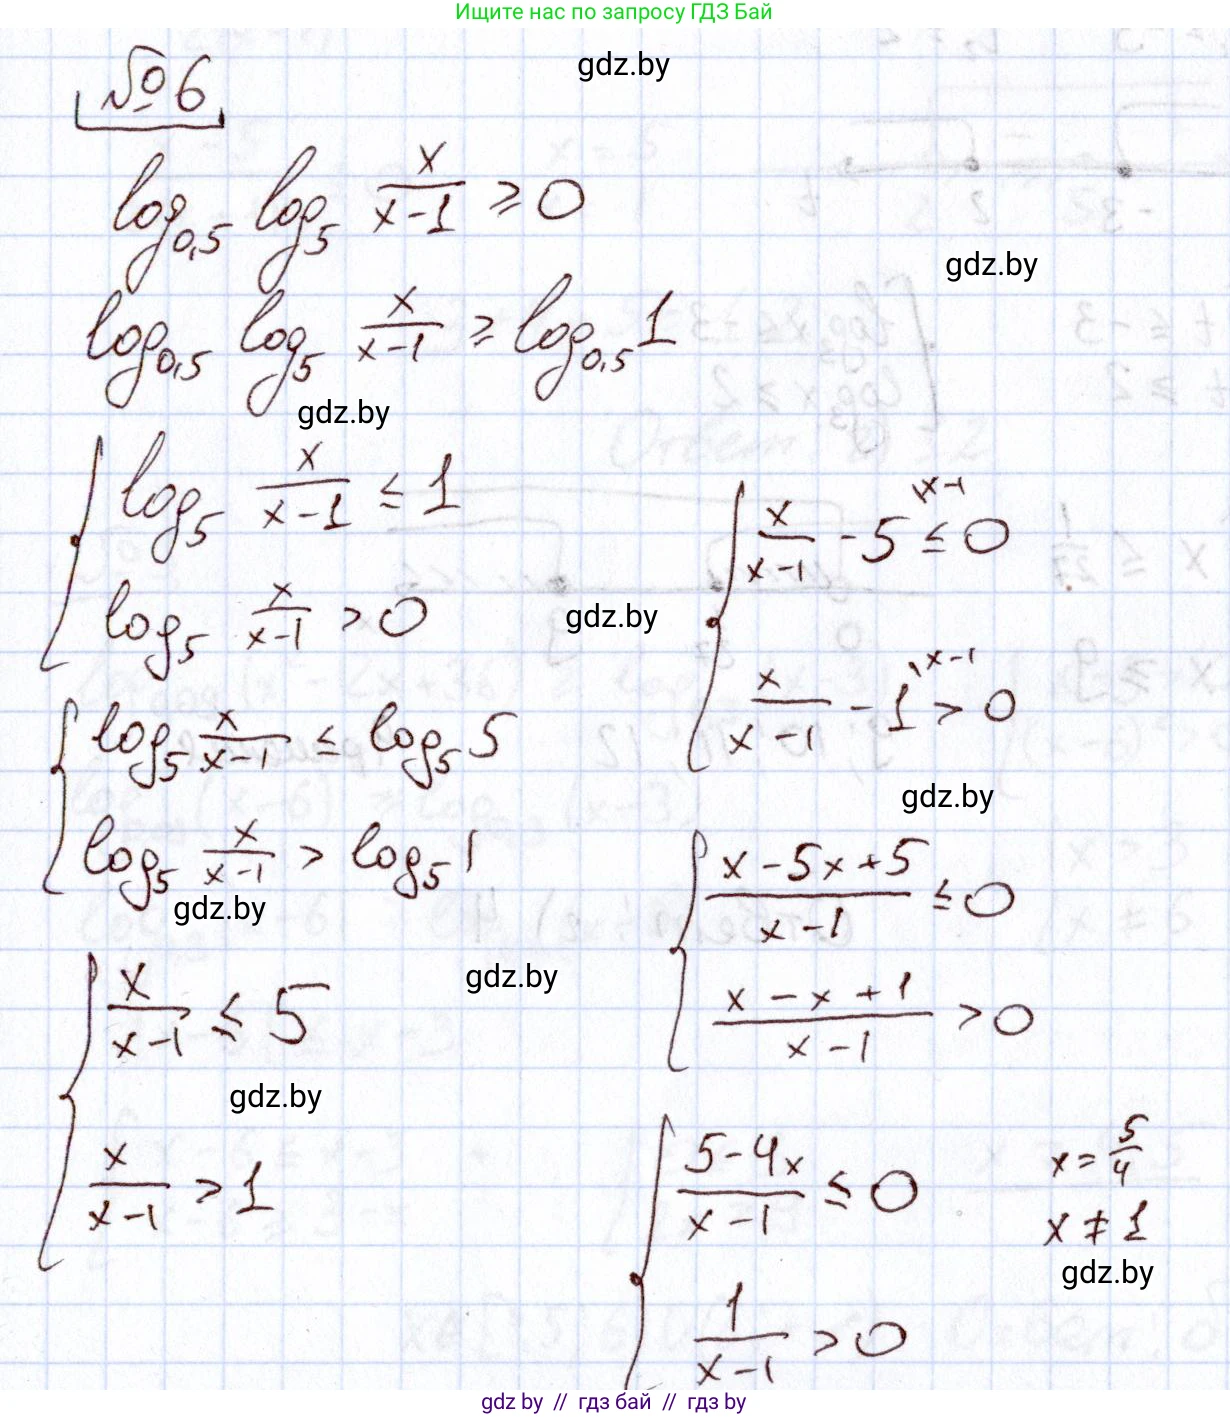 Ищите нас по запросу ГДЗ Бай
gdz.by
№6
log_{0,5} log_5 x/(x-1) ≥ 0
gdz.by
log_{0,5} log_5 x/(x-1) ≥ log_{0,5} 1
gdz.by
{ log_5 x/(x-1) ≤ 1
log_5 x/(x-1) > 0
gdz.by
{ log_5 x/(x-1) ≤ log_5 5
log_5 x/(x-1) > log_5 1
gdz.by
gdz.by
{ x/(x-1) ≤ 5
gdz.by
x/(x-1) > 1
{ x/(x-1) - 5 ^{\x-1} ≤ 0
x/(x-1) - 1 ^{\x-1} > 0
gdz.by
{ (x-5x+5)/(x-1) ≤ 0
(x-x+1)/(x-1) > 0
{ (5-4x)/(x-1) ≤ 0
1/(x-1) > 0
x = 5/4
x ≠ 1
gdz.by
gdz by // гдз бай // гдз by